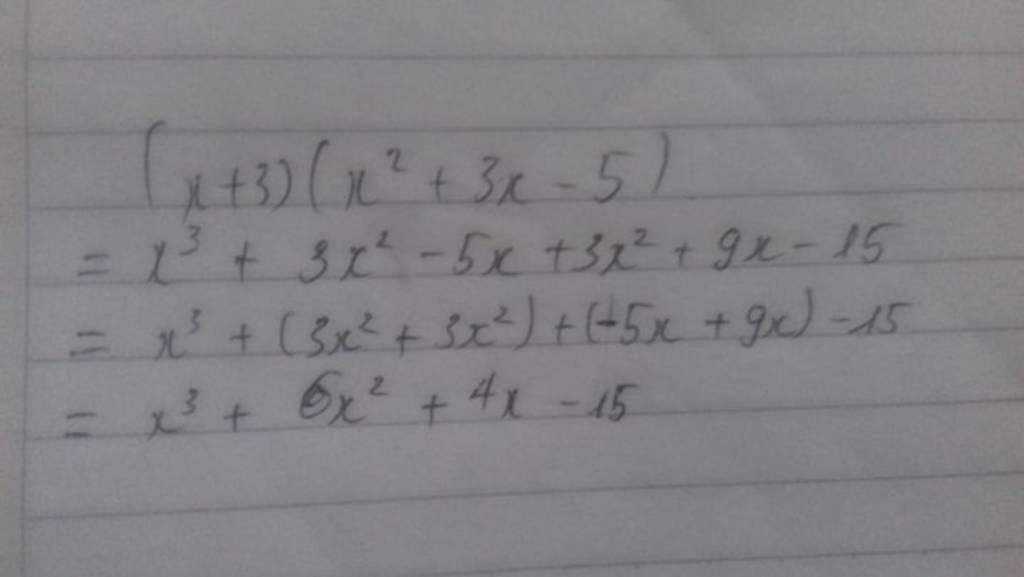 (x+3)(x² + 3x - 5)
= x³ + 3x² - 5x + 3x² + 9x - 15
= x³ + (3x² + 3x²) + (-5x + 9x) - 15
= x³ + 6x² + 4x - 15